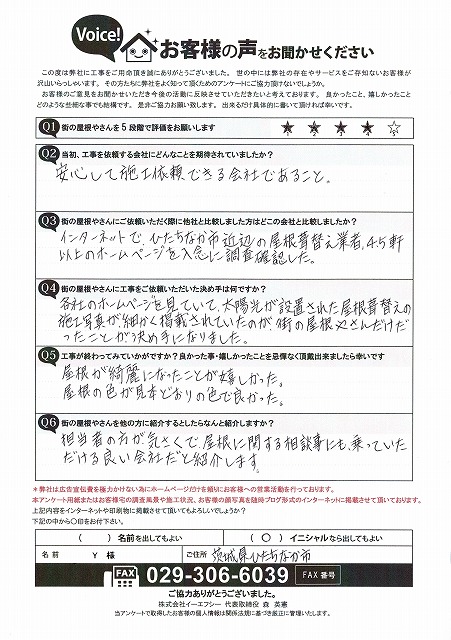 Voice!
お客様の声をお聞かせください
この度は弊社に工事をご用命頂き誠にありがとうございました。世の中には弊社の存在やサービスをご存知ないお客様が
沢山いらっしゃいます。その方たちに弊社をよく知って頂くためのアンケートにご協力頂けないでしょうか。
お客様のご意見をお聞かせいただき今後の活動に反映させていただきたいと考えております。良かったこと、嬉しかったこと
どのような些細な事でも結構です。是非ご協力お願い致します。出来るだけ具体的に書いて頂ければ幸いです。
Q1 街の屋根やさんを5段階で評価をお願いします
1 2 3 4 5
Q2 当初、工事を依頼する会社にどんなことを期待されていましたか?
安心して施工依頼できる会社であること。
Q3 街の屋根やさんにご依頼いただく際に他社と比較しました方はどこの会社と比較しましたか?
インターネットで、ひたちなか市近辺の屋根葺替え業者、45軒
以上のホームページを入念に調査確認した。
Q4 街の屋根やさんに工事をご依頼いただいた決め手は何ですか?
各社のホームページを見ていて、太陽光が設置された屋根葺替えの
施工写真が細かく掲載されていたのが、街の屋根やさんだけだ
ったことが決め手になりました。
Q5 工事が終わってみていかがですか?良かった事・嬉しかったことを忌憚なく頂戴出来ましたら幸いです
屋根が綺麗になったことが嬉しかった。
屋根の色が見本どおりの色で良かった。
Q6 街の屋根やさんを他の方に紹介するとしたらなんと紹介しますか?
担当者の方が気さくで、屋根に関する相談事にも、乗っていた
だける良い会社だと紹介します。
※弊社は広告宣伝費を極力かけない為にホームページだけを頼りにお客様への営業活動を行っております。
本アンケート用紙またはお客様宅の調査風景や施工状況、お客様の顔写真を随時ブログ形式のインターネットに掲載させて頂いております。
上記内容をインターネットや印刷物に掲載させて頂いてもよろしいでしょうか?
下記の中から〇印をお付下さい。
( ) 名前を出してもよい ( 〇 ) イニシャルなら出してもよい
名前 Y 様 ご住所 茨城県ひたちなか市
FAX 029-306-6039 FAX番号
ご協力ありがとうございました。
株式会社イーエフシー 代表取締役 森 英憲
当アンケートで取得したお客様の個人情報は関係法規に基づき厳正に管理いたします。